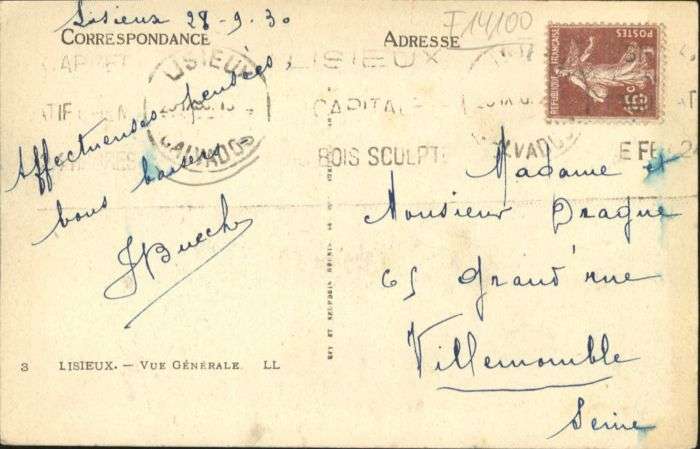 Lisieux 28-9-30
CORRESPONDANCE
ADRESSE
F14/100
REPUBLIQUE FRANÇAISE
POSTES
LISIEUX
CALVADOS
LISIEUX
CAPITAL
BOIS SCULPT
Affectueuses pensées,
bons baisers
Madame et
Monsieur Draque
65 Grand'rue
Villemomble
Seine
3 LISIEUX. — VUE GÉNÉRALE. LL